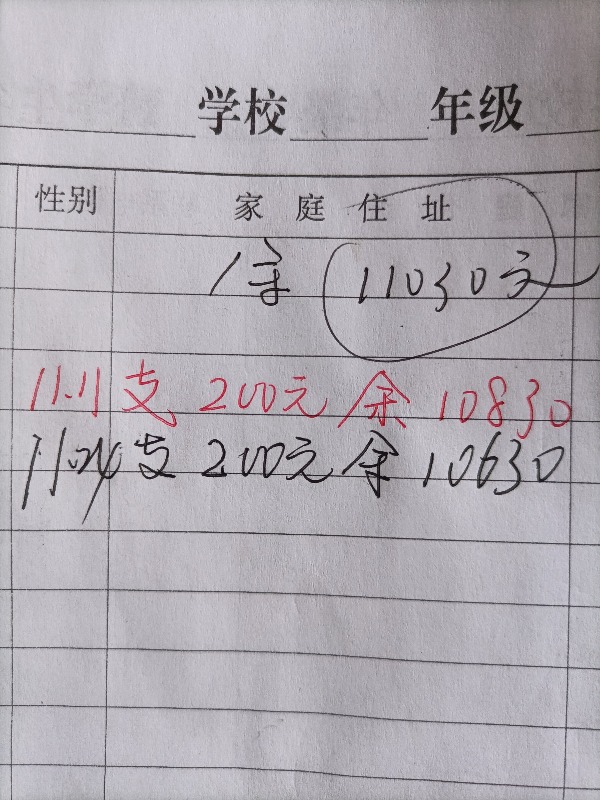 学校 年级
性别 家庭住址
余 11030元
11.11支 200元 余 10830
11.24支 200元 余 10630